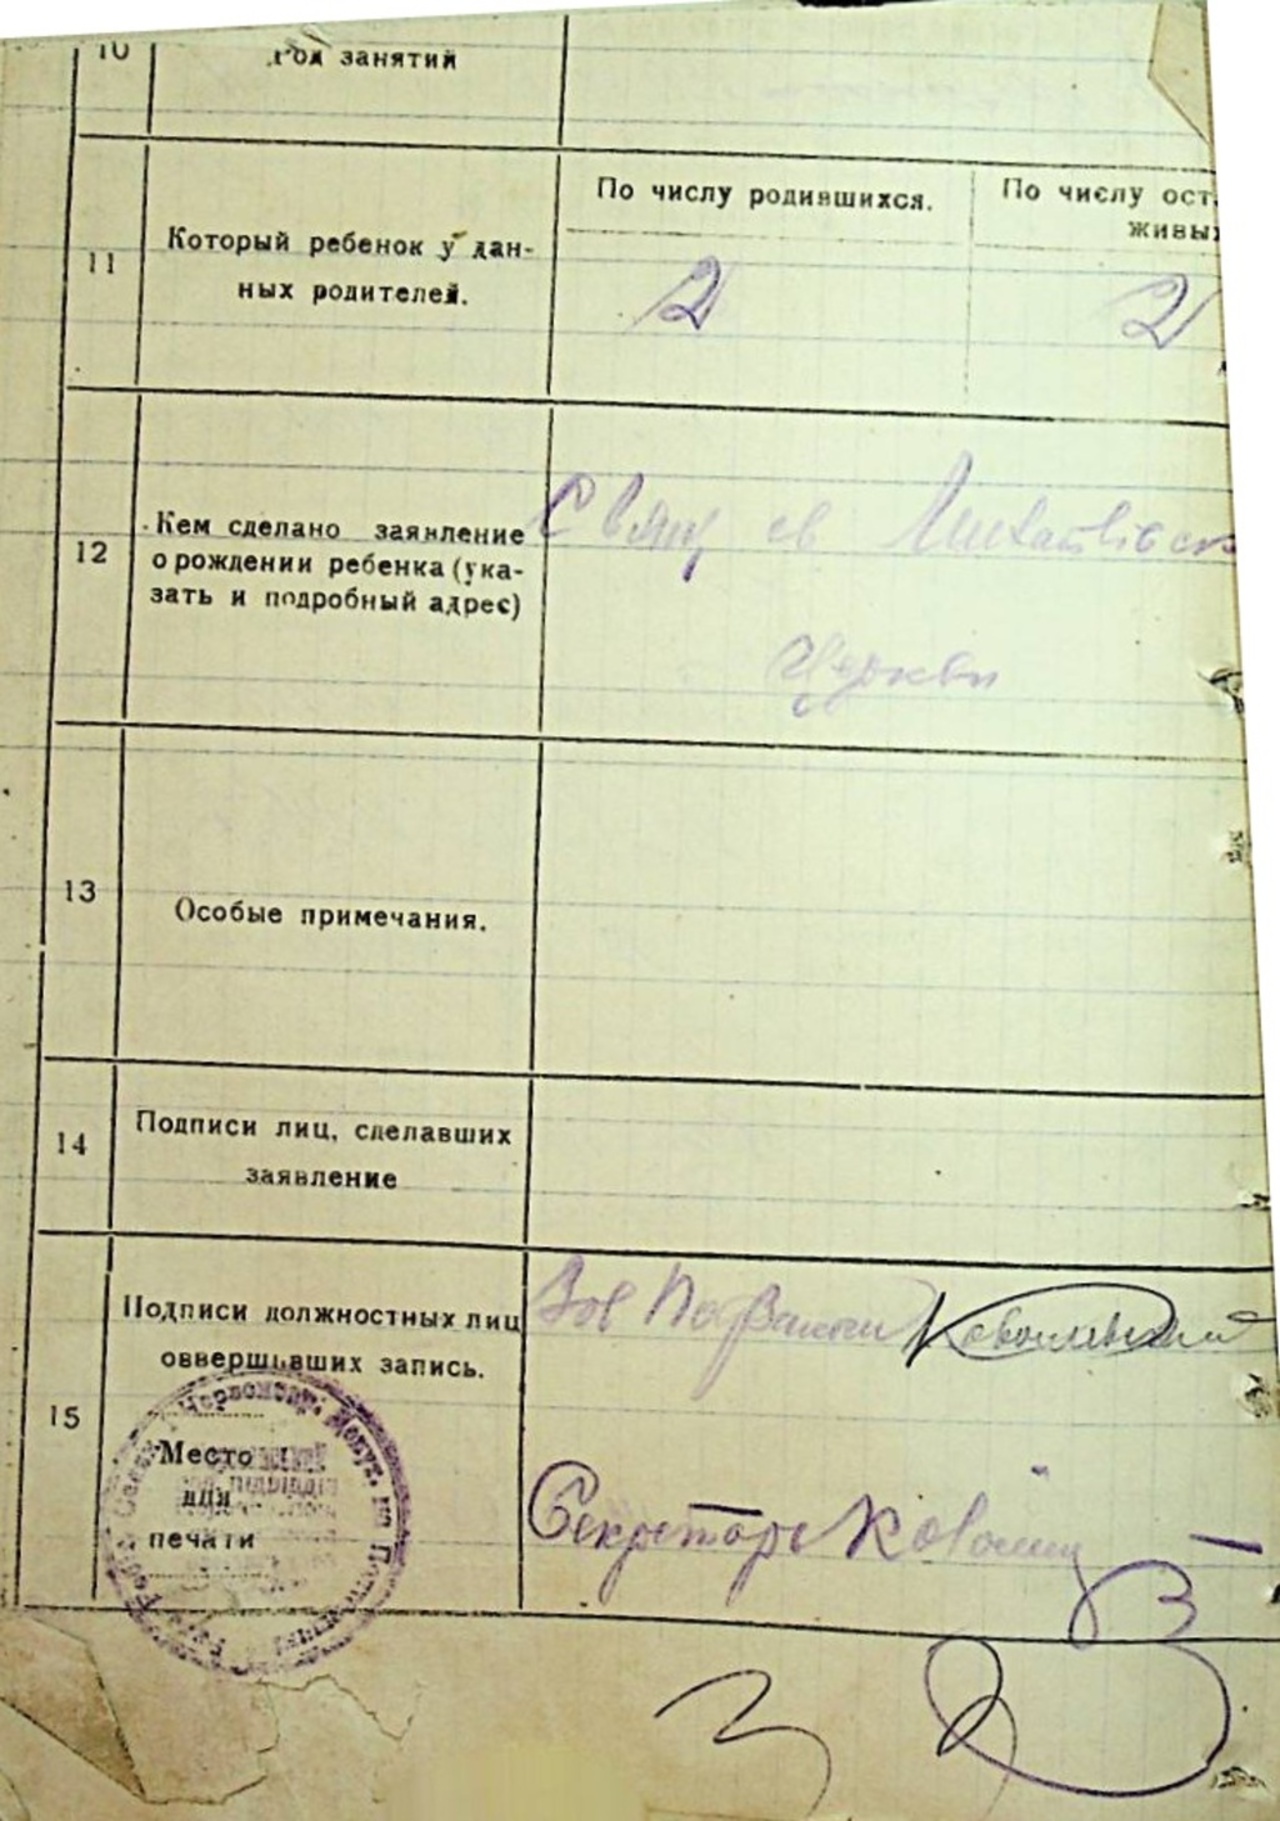 10
Род занятий
11
Который ребенок у дан-
ных родителей.
По числу родившихся.
По числу ост
живых
2
2
12
Кем сделано заявление
о рождении ребенка (ука-
зать и подробный адрес)
Свящ св Михайлівск
Церкви
13
Особые примечания.
14
Подписи лиц, сделавших
заявление
15
Подписи должностных лиц
оввершивших запись.
Место
для
печати
Зав
Секретарь